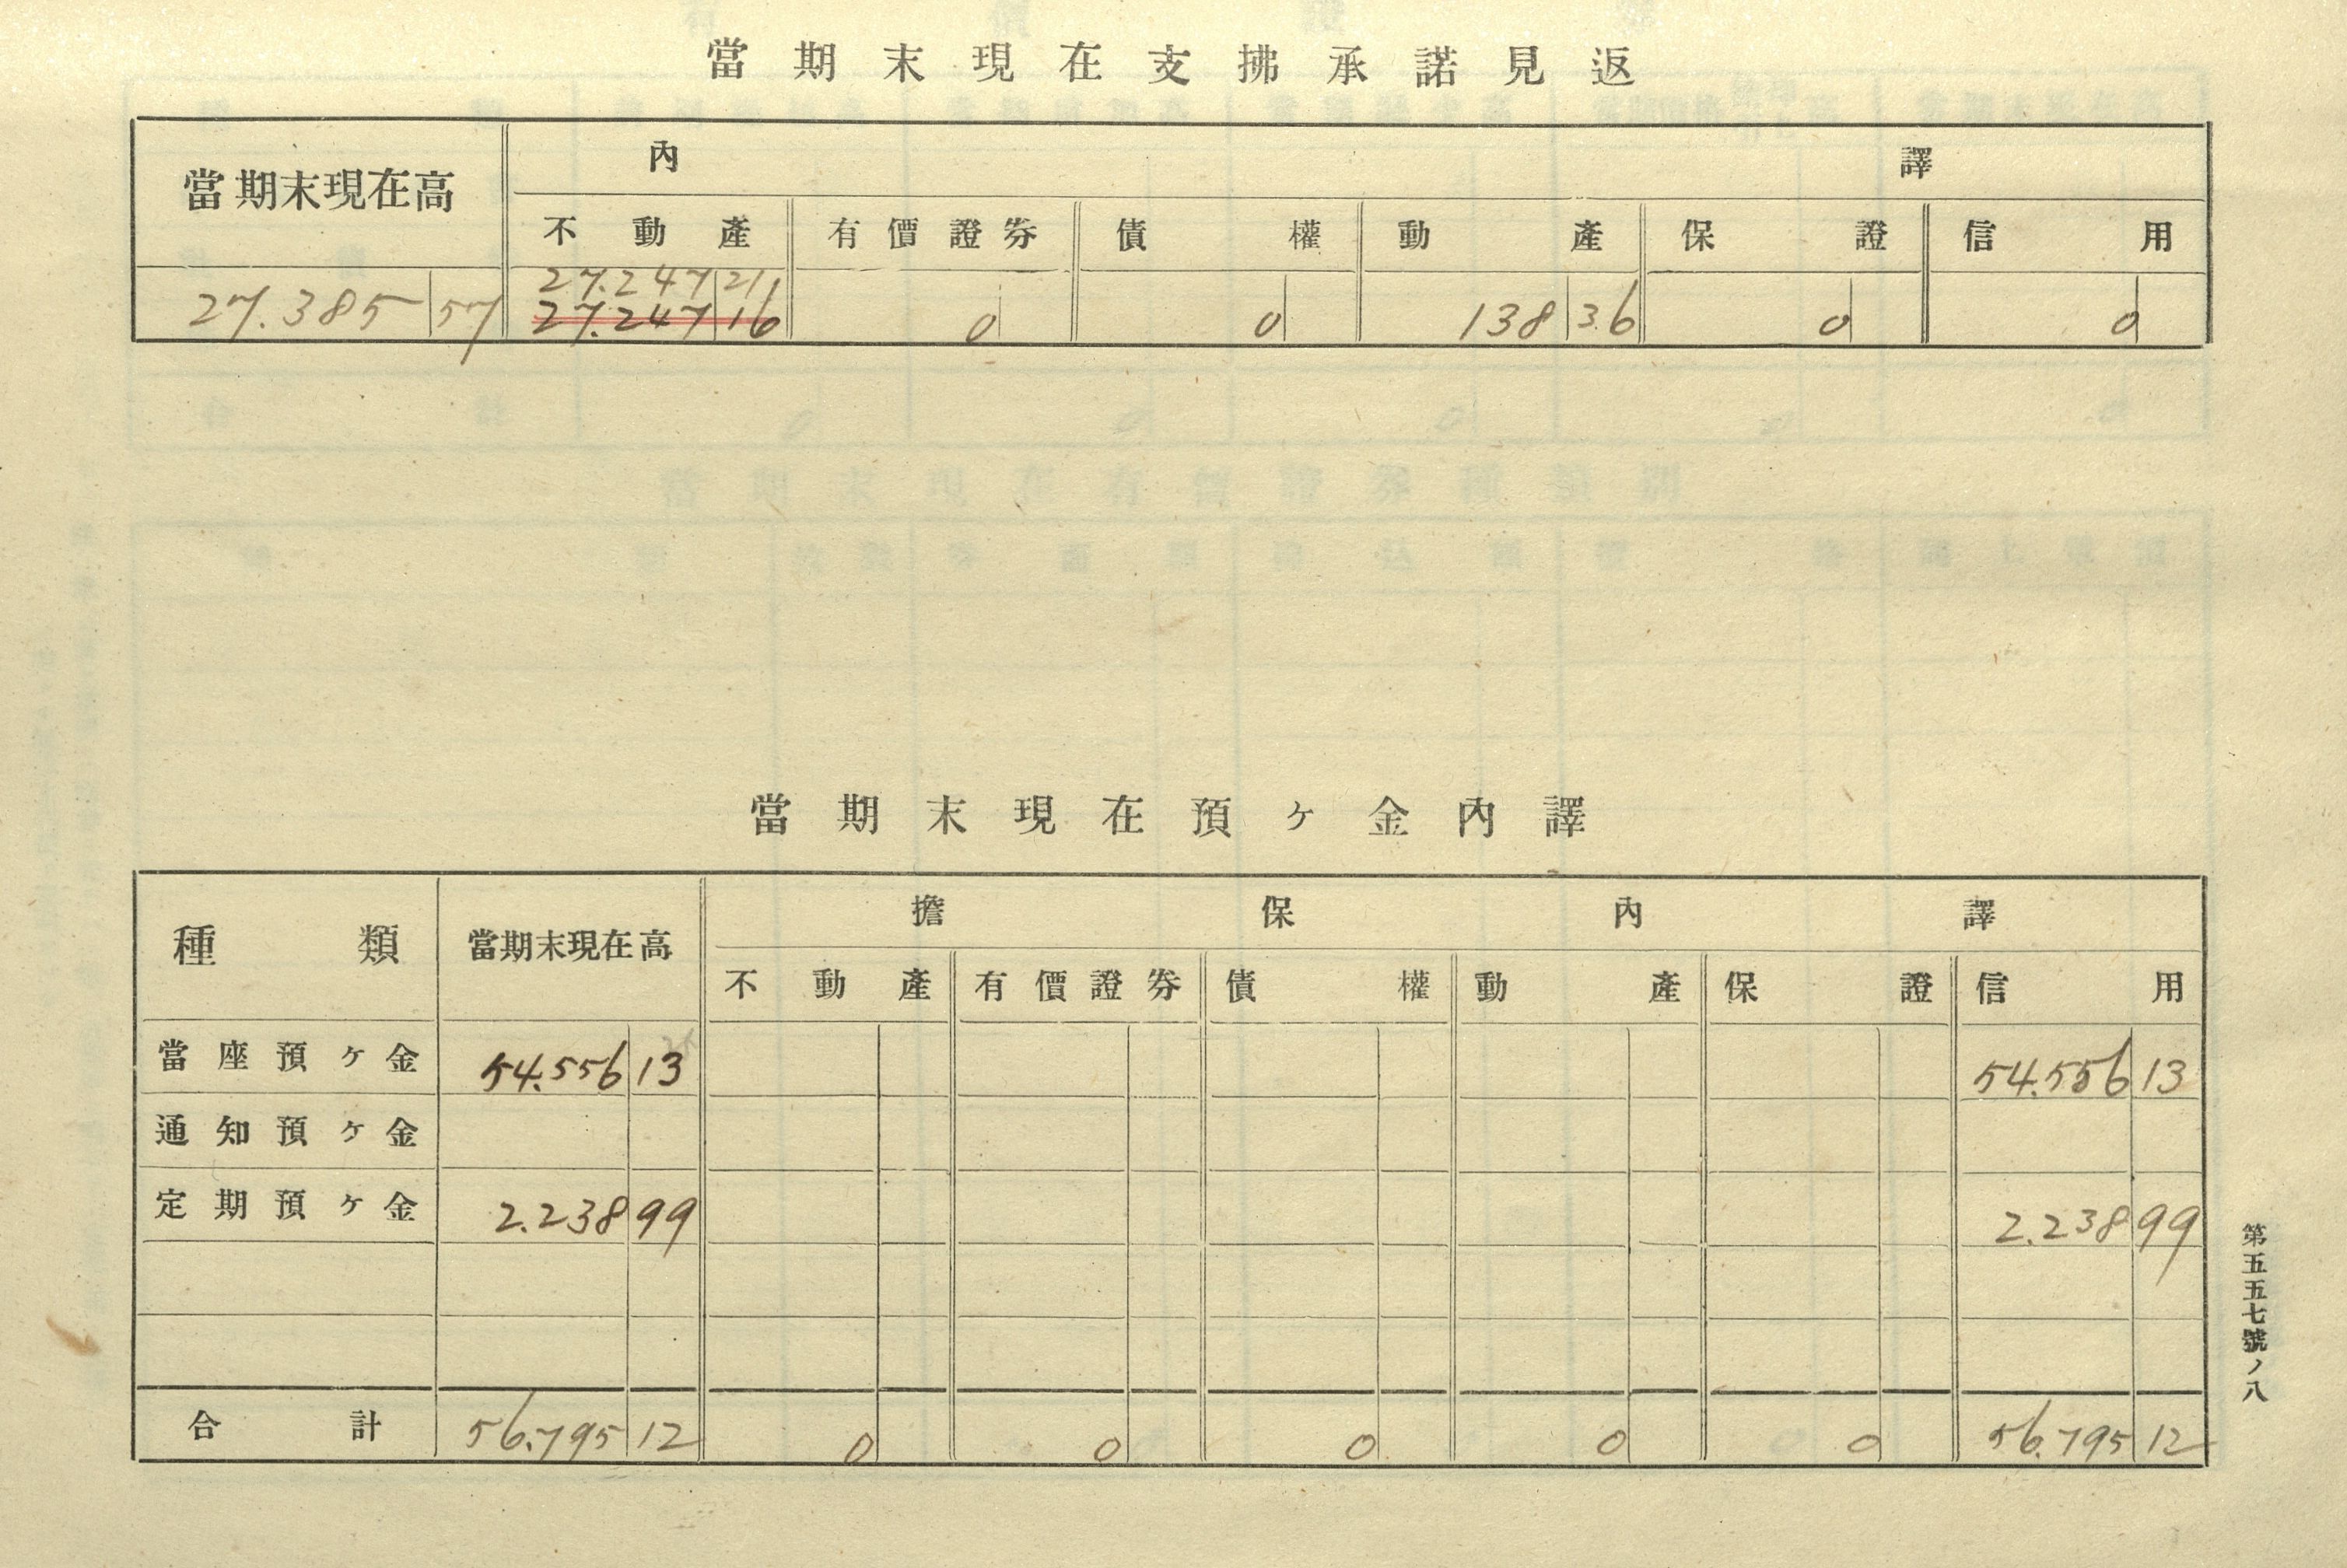 當期末現在支拂承諾見返
當期末現在高 內譯
不動產 有價證券 債權 動產 保證 信用
27.247 21
27.385 57 27.247 16 0 0 138 36 0 0
當期末現在預ヶ金內譯
種類 當期末現在高 擔保內譯
不動產 有價證券 債權 動產 保證 信用
當座預ヶ金 54.556 13 54.556 13
通知預ヶ金
定期預ヶ金 2.238 99 2.238 99
合計 56.795 12 0 0 0 0 0 56.795 12
第五五七號ノ八